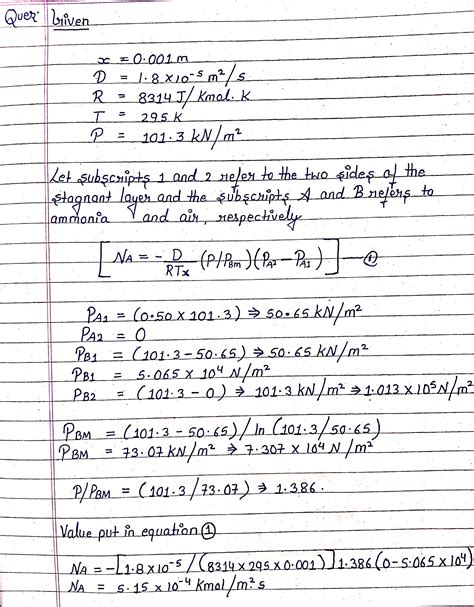 Ques: Given
x = 0.001 m
D = 1.8×10⁻⁵ m²/s
R = 8314 J/Kmol.K
T = 295 K
P = 101.3 kN/m²
Let subscripts 1 and 2 refer to the two sides of the
stagnant layer and the subscripts A and B refers to
ammonia and air, respectively
[NA = - D/RTx (P/PBm)(PA2 - PA1)] — ①
PA1 = (0.50 × 101.3) ⇒ 50.65 kN/m²
PA2 = 0
PB1 = (101.3 - 50.65) ⇒ 50.65 kN/m²
PB1 = 5.065 × 10⁴ N/m²
PB2 = (101.3 - 0) ⇒ 101.3 kN/m² ⇒ 1.013 × 10⁵ N/m²
PBM = (101.3 - 50.65) / ln (101.3/50.65)
PBM = 73.07 kN/m² ⇒ 7.307 × 10⁴ N/m²
P/PBM = (101.3/73.07) ⇒ 1.386.
Value put in equation ①
NA = -[1.8×10⁻⁵ / (8314×295×0.001)] 1.386 (0 - 5.065×10⁴)
NA = 5.15 × 10⁻⁴ Kmol/m²s